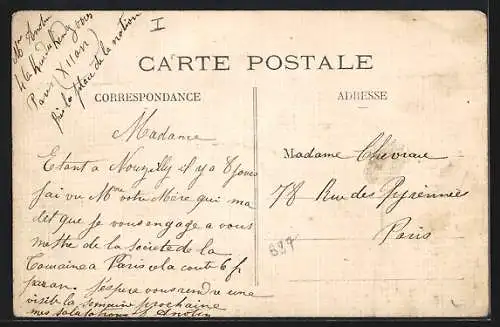 Mr Anotin
I
Paris (XII arr)
près la place de la nation
CARTE POSTALE
CORRESPONDANCE
ADRESSE
Madame
Etant a Nouzilly il y a 8 jours
jai vu Mme votre Mère qui ma
det que je vous engage a vous
mettre de la société de la
Touraine a Paris cela coute 6 f
par an. j'espere vous rendre une
visite la semaine prochaine
mes salutations Anotin
Madame Chevreau
78 Rue des Pyrénnées
Paris
897